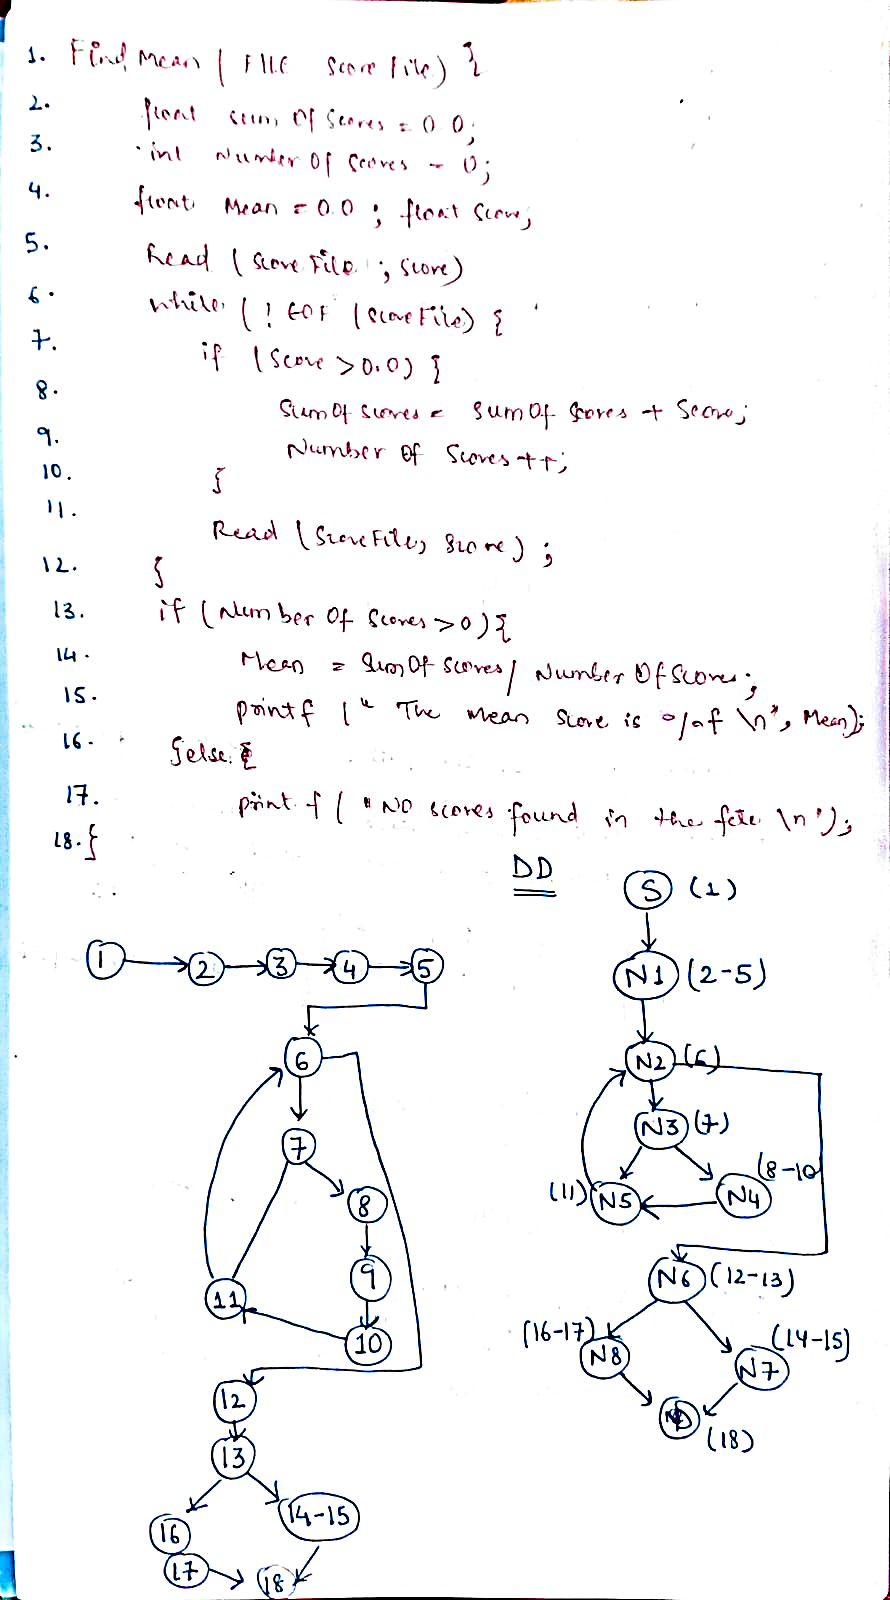 1. Find Mean ( FILE Score File) {
2. float sum Of Scores = 0.0;
3. int Number Of Scores = 0;
4. float Mean = 0.0 ; float Score;
5. Read ( Score File ; Score)
6. while ( ! EOF ( Score File) {
7. if ( Score > 0.0) {
8. Sum Of Scores = Sum Of Scores + Score;
9. Number Of Scores ++;
10. }
11. Read ( Score File, Score ) ;
12. }
13. if ( Number Of Scores > 0 ) {
14. Mean = Sum Of Scores / Number Of Scores ;
15. printf ( " The mean Score is %f \n", Mean);
16. } else {
17. print f ( " NO scores found in the \n ");
18. }
DD
S (1)
1 2 3 4 5
N1 (2-5)
6
N2 (6)
7
N3 (7)
8
(8-10
(11) N5 N4
9
11
10
N6 (12-13)
(16-17) (14-15)
N8 N7
12
(18)
13
14-15
16
17
18